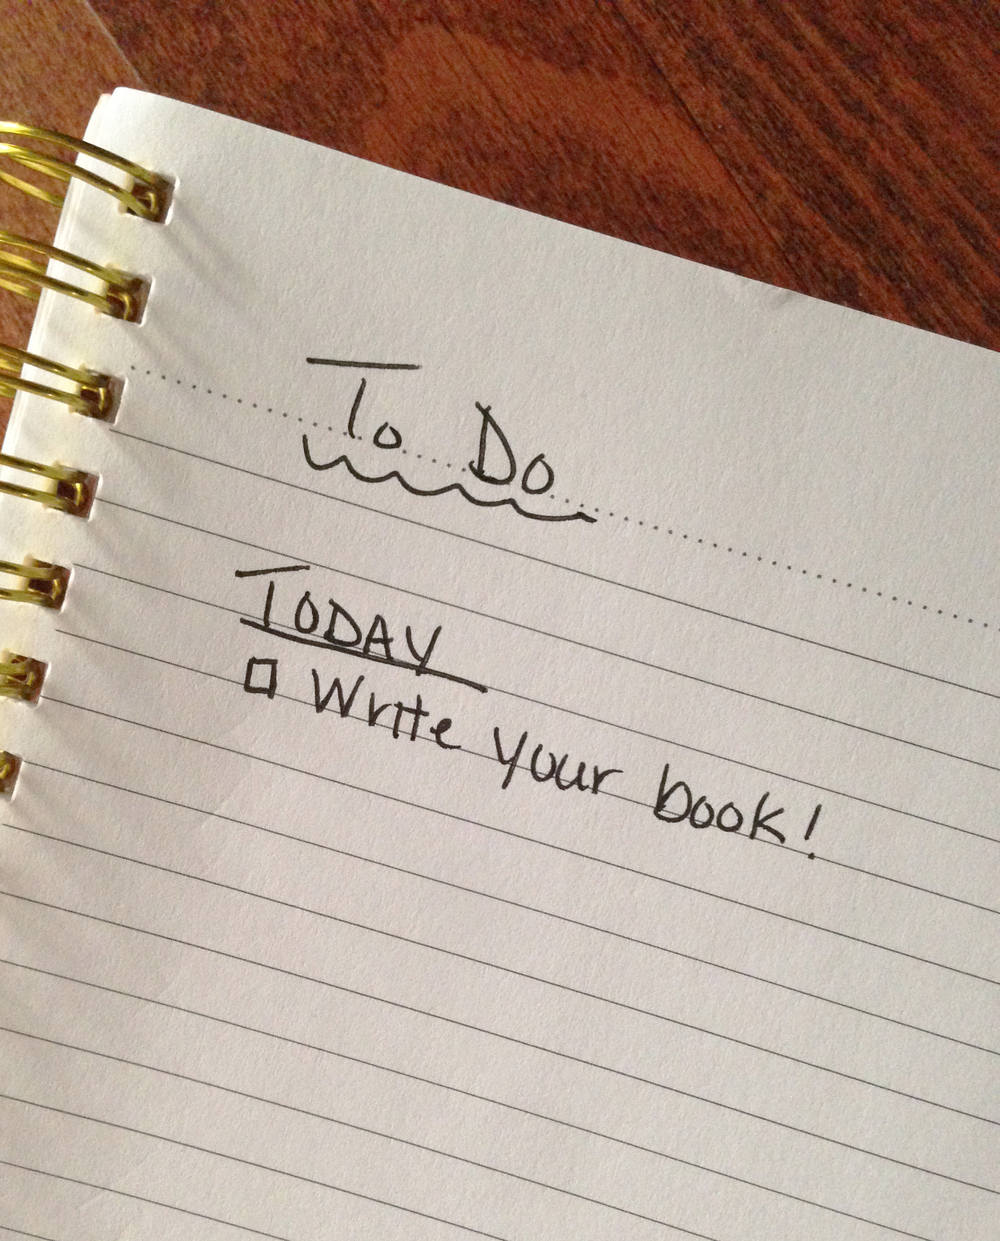 To Do
TODAY
□ Write your book!